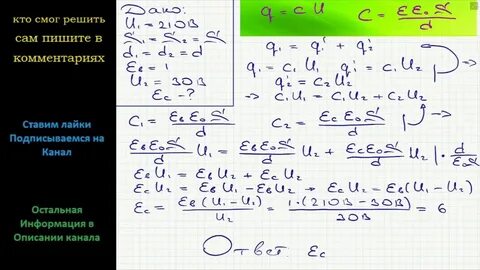 кто смог решить
сам пишите в
комментариях
Ставим лайки
Подписываемся на
Канал
Остальная
Информация в
Описании канала
Дано:
U₁ = 210В
S₁ = S₂ = S
d₁ = d₂ = d
εв = 1
U₂ = 30В
εс - ?
q = c U
C = εε₀S/d
q = q₁' + q₂'
q₁ = c₁ U₁ q₁' = c₁ U₂
q₂' = c₂ U₂
→ c₁U₁ = c₁U₂ + c₂U₂
C₁ = εвε₀S/d C₂ = εсε₀S/d
εвε₀S/d U₁ = εвε₀S/d U₂ + εсε₀S/d U₂ | · d/ε₀S
εвU₁ = εвU₂ + εсU₂
εсU₂ = εвU₁ - εвU₂ → εсU₂ = εв(U₁ - U₂)
εс = εв(U₁ - U₂)/U₂ = 1·(210В - 30В)/30В = 6
Ответ: εс